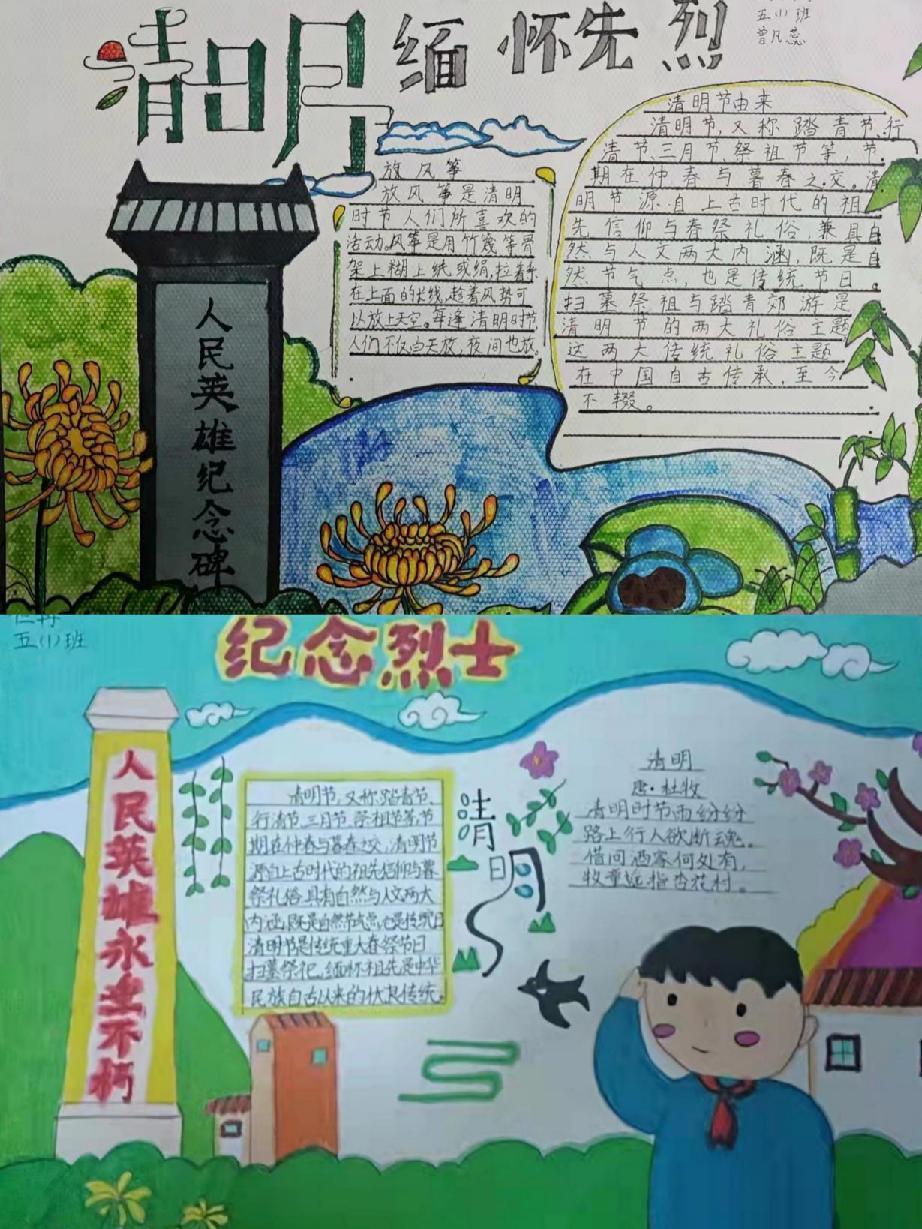 清明
缅怀先烈
五(1)班
曾凡蕊
人民英雄纪念碑
放风筝
放风筝是清明
时节人们所喜欢的
活动,风筝是用竹篾等骨
架上糊上纸或绢,拉着系
在上面的长线,趁着风势可
以放上天空。每逢清明时节
人们不仅白天放,夜间也放
清明节由来
清明节,又称踏青节、行
清节、三月节、祭祖节等,节
期在仲春与暮春之交。清
明节源自上古时代的祖
先信仰与春祭礼俗,兼具自
然与人文两大内涵,既是自
然节气点,也是传统节日。
扫墓祭祖与踏青郊游是
清明节的两大礼俗主题
这两大传统礼俗主题
在中国自古传承,至今
不辍。
五(1)班
纪念烈士
人民英雄永垂不朽
清明节,又称踏青节、
行清节、三月节、祭祖节等,节
期在仲春与暮春之交,清明节
源自上古时代的祖先信仰与暮
祭礼俗,具有自然与人文两大
内涵,既是自然节气点,也是传统节日
清明节是传统重大春祭节日
扫墓祭祀、缅怀祖先是中华
民族自古以来的优良传统。
清明
清明
唐·杜牧
清明时节雨纷纷
路上行人欲断魂。
借问酒家何处有,
牧童遥指杏花村。